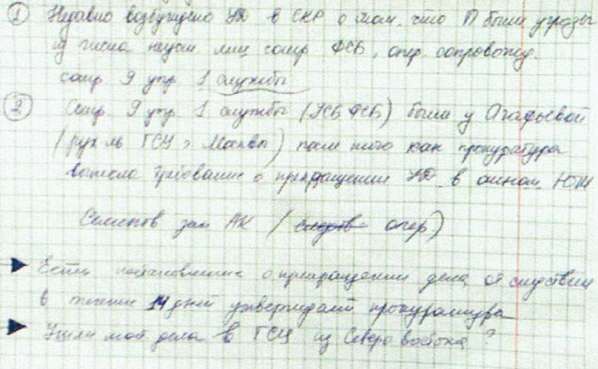 1 Недавно возбуждено УД в СКР о том, что П были угрозы
из числа неуст лиц сотр ФСБ, опер. сопровожд.
сотр 9 упр 1 службы
2 Сотр. 9 упр 1 службы (УСБ ФСБ) были у Агафьевой
(рук ль ГСУ г Москвы) после того как прокуратура
вынесла требование о прекращении УД в отнош. ЮТМ
Семенов зам АК (следств опер)
Если постановление о прекращении дела, от следствия
в течении 14 дней утверждает прокуратура
Ушли мои дела в ГСУ из Северо востока?